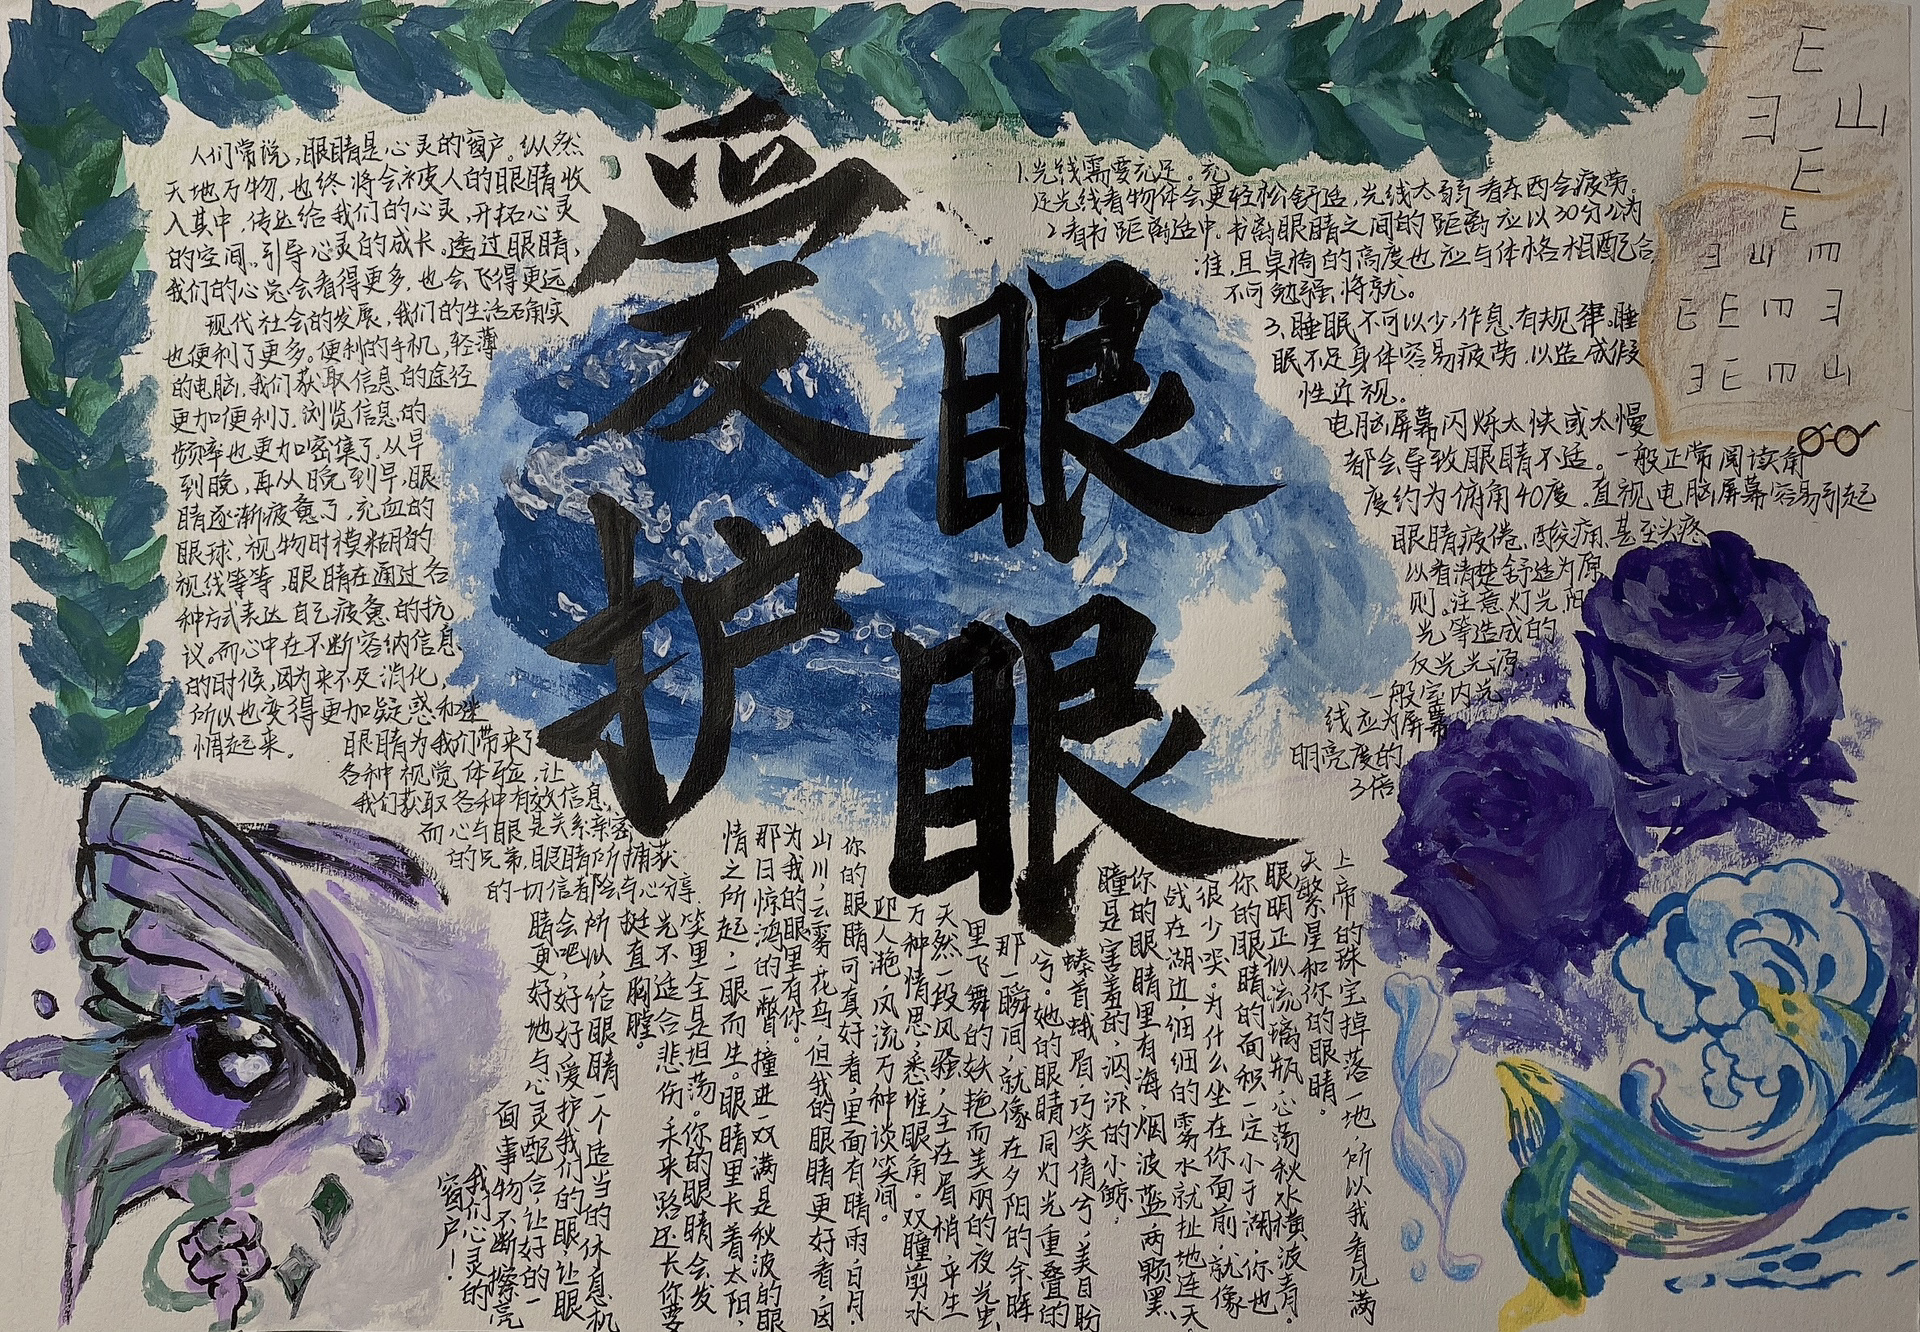 爱
护
眼
眼
人们常说,眼睛是心灵的窗户。纵然
天地万物,也终将会被人的眼睛收
入其中,传达给我们的心灵,开拓心灵
的空间。引导心灵的成长。透过眼睛,
我们的心觉会看得更多,也会飞得更远。
现代社会的发展,我们的生活确实
也便利了更多。便利的手机,轻薄
的电脑,我们获取信息的途径
更加便利了,浏览信息的
频率也更加密集了,从早
到晚,再从晚到早,眼
睛逐渐疲惫了,充血的
眼球,视物时模糊的
视线等等,眼睛在通过各
种方式表达自己疲惫的抗
议。而心中在不断容纳信息
的时候,因为来不及消化,
所以也变得更加疑惑和迷
惘起来。
眼睛为我们带来了
各种视觉体验,让
我们获取各种有效信息,
而心与眼是关系亲密
的兄弟,眼睛所捕获
的一切信都会与心分享
1.光线需要充足。充
足光线看物体会更轻松舒适,光线太弱看东西会疲劳。
2.看书距离适中。书离眼睛之间的距离应以30分公为
准,且桌椅的高度也应与体格相配合,
不可勉强将就。
3.睡眠不可以少,作息有规律。睡
眠不足身体容易疲劳,以造成假
性近视。
电脑屏幕闪烁太快或太慢
都会导致眼睛不适。一般正常阅读角
度约为俯角40度,直视电脑屏幕容易引起
眼睛疲倦、酸痛,甚至头疼
以看清楚舒适为原
则。注意灯光、阳
光等造成的
反光光源
一般室内光
线应为屏幕
明亮度的
3倍
上帝的珠宝掉落一地,所以我看见满
天繁星和你的眼睛。
眼明正似流璃瓶,心荡秋水横波青。
你的眼睛的面积一定小于湖,你也
很少哭。为什么坐在你面前,就像
战在湖边,细细的雾水就扯地连天。
你的眼睛里有海,烟波蓝,两颗黑
瞳是害羞的,泅泳的小鲸。
螓首蛾眉,巧笑倩兮,美目盼
兮。她的眼睛同灯光重叠的
那一瞬间,就像在夕阳的余晖
里飞舞的妖艳而美丽的夜光虫
天然一段风骚,全在眉梢,平生
万种情思,悉堆眼角。双瞳剪水
迎人滟,风流万种谈笑间。
你的眼睛可真好看,里面有晴雨,日月,
山川,云雾,花鸟,但我的眼睛更好看,因
为我的眼里有你。
那日惊鸿的一瞥,撞进一双满是秋波的眼
情之所起,一眼而生。眼睛里长着太阳,
笑里全是坦荡。你的眼睛会发
光不适合悲伤,未来路还长你要
挺直胸膛。
所以,给眼睛一个适当的休息机
会吧,好好爱护我们的眼,让眼
睛更好地与心灵配合,让好的一
面事物不断擦亮
我们心灵的
窗户!
E
ヨ 山
E
E
ヨ 山 m
E E m ヨ
ヨ E m 山